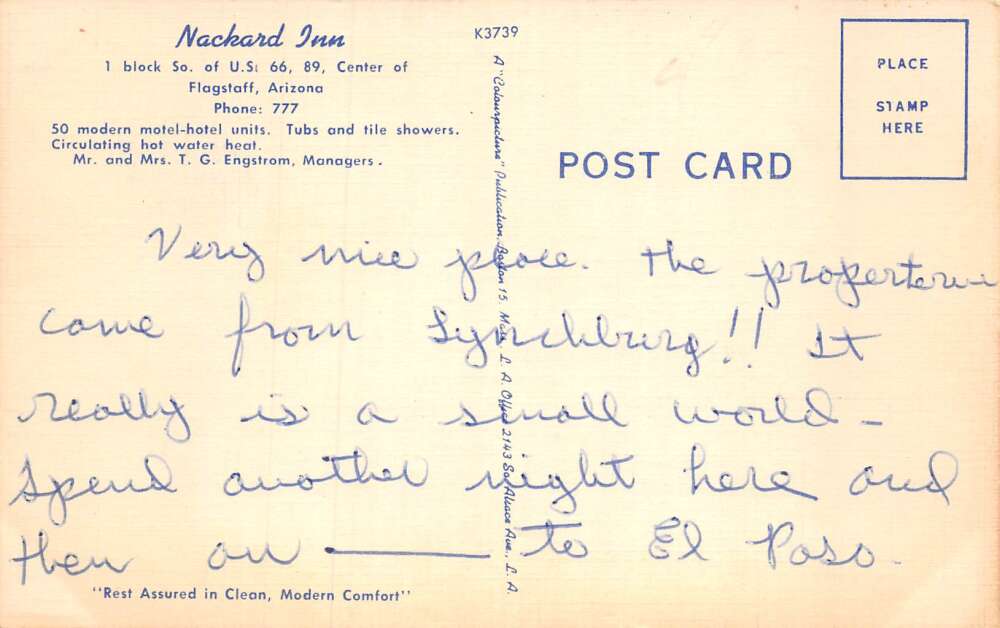 Nackard Inn
1 block So. of U.S: 66, 89, Center of
Flagstaff, Arizona
Phone: 777
50 modern motel-hotel units. Tubs and tile showers.
Circulating hot water heat.
Mr. and Mrs. T. G. Engstrom, Managers.
K3739
A "Colourpicture" Publication, Boston 15, Mass., L. A. Office 2143 Ave., L. A.
PLACE
STAMP
HERE
POST CARD
Very nice place. The
come from Lynchburg!! It
really is a small world -
Spend another night here and
then on — to El Paso.
"Rest Assured in Clean, Modern Comfort"